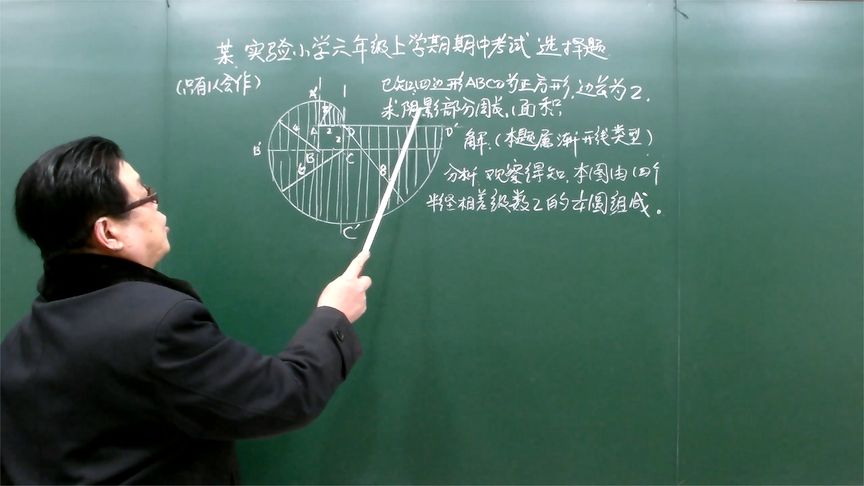 某实验小学六年级上学期期中考试选择题
(只有1人会作)
已知:四边形ABCD为正方形,边长为2.
求阴影部分周长,面积,
解:(本题属渐开线类型)
分析:观察得知,本图由四个
半径相差级数2的¼圆组成。
A' D' B' C'
A B C D
2 2 4 6 8